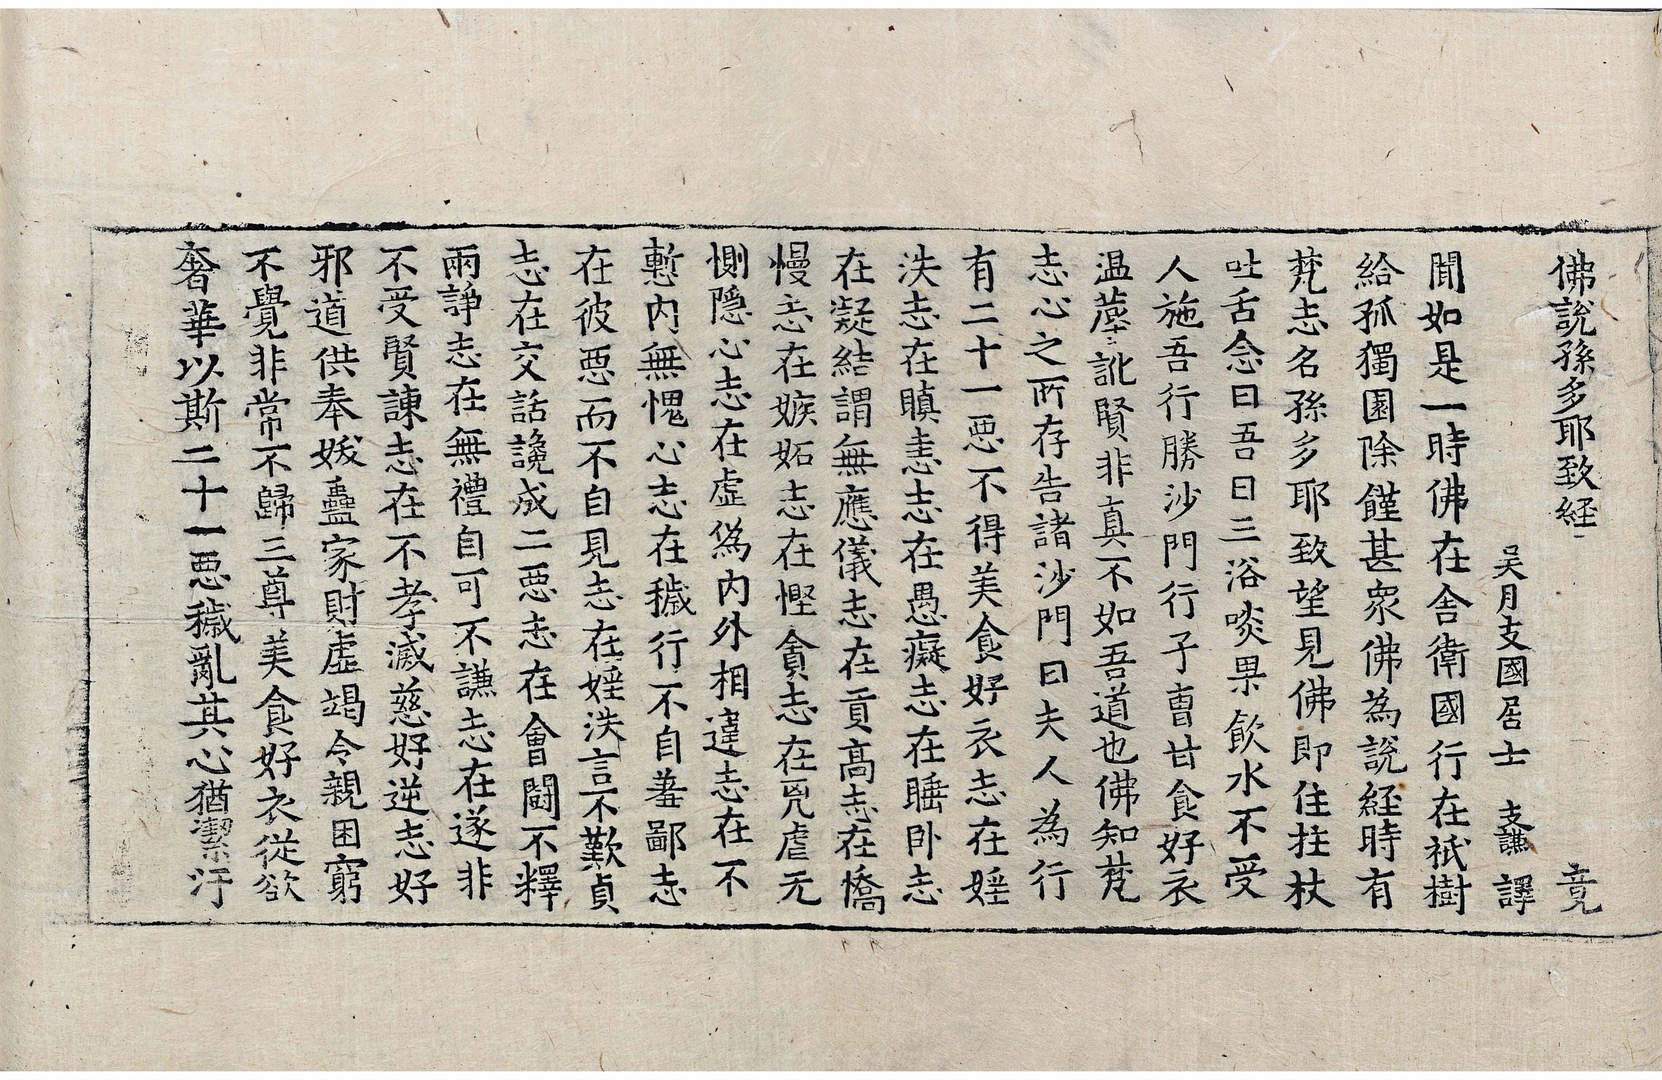 佛說孫多耶致經 竟
吴月支國居士 支謙 譯
聞如是一時佛在舍衛國行在祇樹
給孤獨園除饉甚衆佛為說經時有
梵志名孫多耶致望見佛即住拄杖
吐舌念曰吾日三浴啖果飲水不受
人施吾行勝沙門行子曹甘食好衣
温蓐訛賢非真不如吾道也佛知梵
志心之所存告諸沙門曰夫人為行
有二十一惡不得美食好衣志在婬
泆志在瞋恚志在愚癡志在睡卧志
在凝結謂無應儀志在貢高志在憍
慢志在嫉妬志在慳貪志在兇虐无
惻隱心志在虛為內外相違志在不
慙內無愧心志在穢行不自羞鄙志
在彼惡而不自見志在婬泆言不歎貞
志在交話讒成二惡志在會鬪不釋
兩諍志在無禮自可不謙志在遂非
不受賢諫志在不孝滅慈好逆志好
邪道供奉妭蠱家財虛竭令親困窮
不覺非常不歸三尊美食好衣從欲
奢華以斯二十一惡穢亂其心猶潔汙